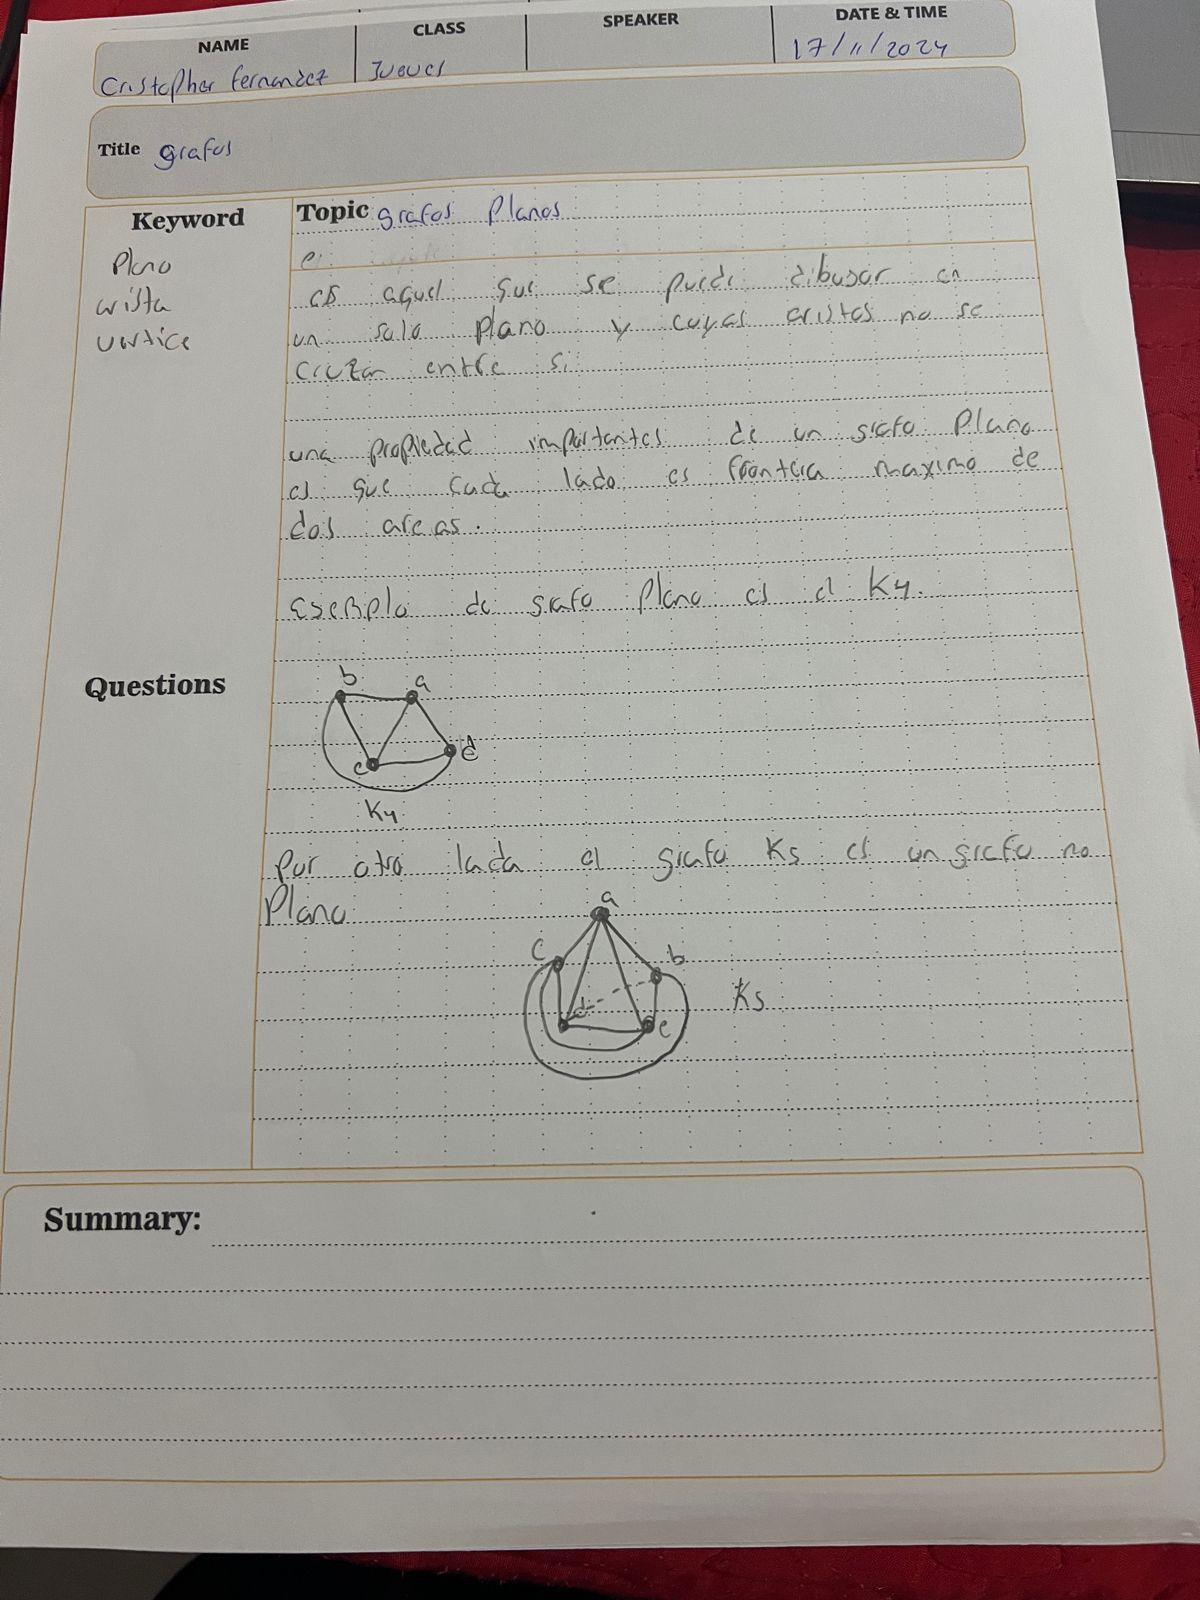 NAME CLASS SPEAKER DATE & TIME
Cristopher fernandez Jueves 17/11/2024
Title grafos
Keyword
Plano
arista
vertice
Topic grafos Planos
e
es aquel que se puede dibujar en
un solo plano y cuyas aristas no se
cruzan entre si
una propiedad importantes de un grafo Plano
es que cada lado es frontera maximo de
dos areas.
Ejemplo de grafo Plano es el K4.
Questions
b a
c d
K4
Por otro lado el grafo K5 es un grafo no
Plano
a
c b
d e K5
Summary: